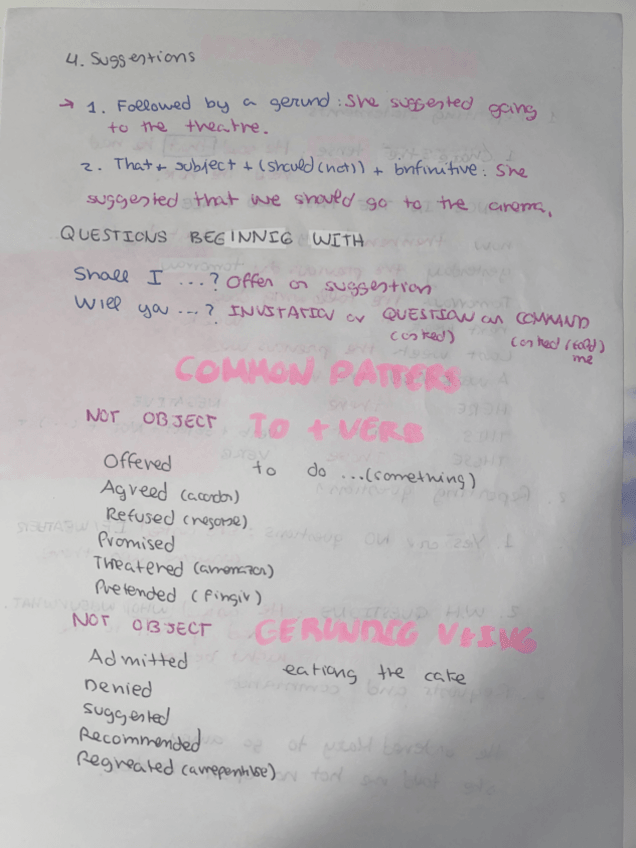 4. Suggestions
→ 1. Followed by a gerund: She suggested going
to the theatre.
2. That + subject + (should (not)) + binfinitive: She
suggested that we should go to the cinema.
QUESTIONS BEGINNIG WITH
Shall I ...? Offer or suggestion
Will you ...? INVITATION or QUESTION or COMMAND
(asked) (asked (told)
me
COMMON PATTERS
NOT OBJECT TO + VERB
Offered to do ...(something)
Agreed (acordar)
Refused (negarse)
Promised
Theatered (amenazar)
Pretended (fingir)
NOT OBJECT GERUNDIO V+ING
Admitted eationg the cake
Denied
Suggested
Recommended
Regreated (arrepentirse)